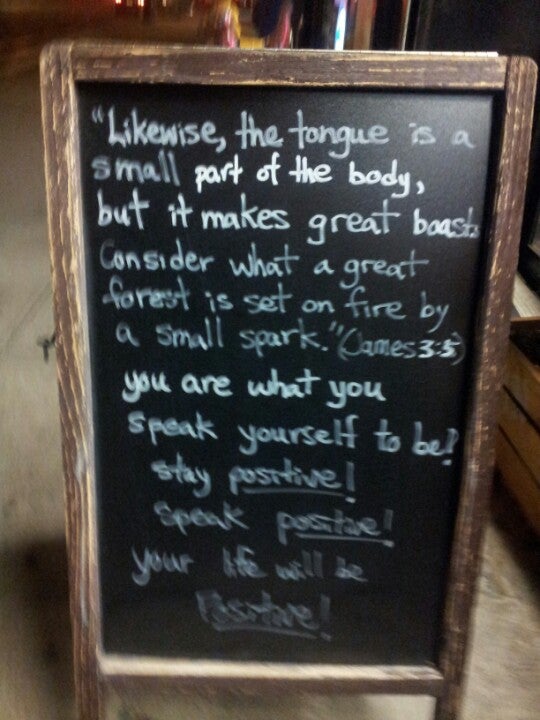 "Likewise, the tongue is a
small part of the body,
but it makes great boasts.
Consider what a great
forest is set on fire by
a small spark." (James 3:5)
you are what you
speak yourself to be!
stay positive!
speak positive!
your life will be
Positive!